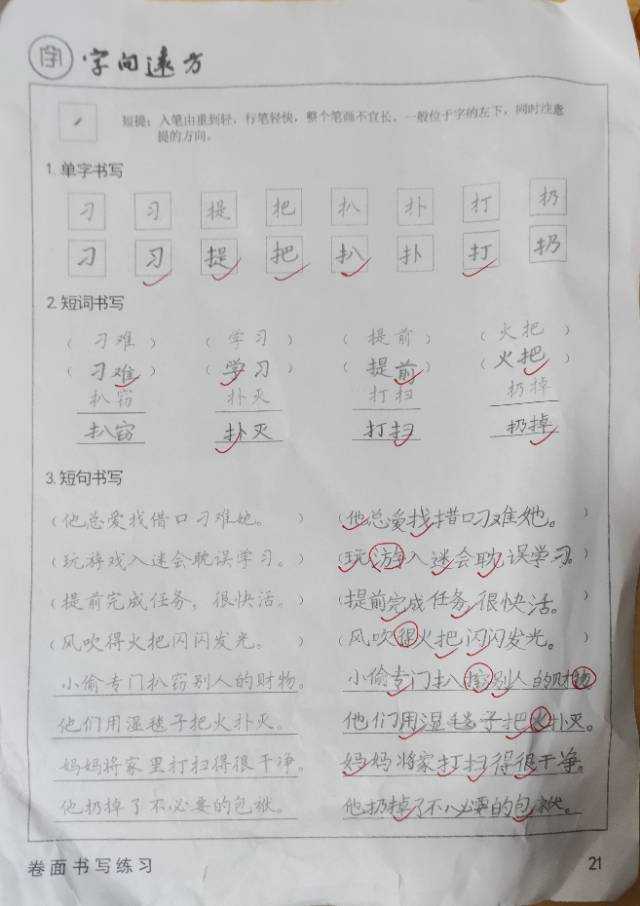 字 字间速方
短提：入笔由重到轻，行笔轻快，整个笔画不宜长、一般位于字的左下，同时注意
提的方向。
1.单字书写
刁 习 提 把 扒 扑 打 扔
刁 习 提 把 扒 扑 打 扔
2.短词书写
（刁难） （学习） （提前） （火把）
（刁难） （学习） （提前） （火把）
扒窃 扑灭 打扫 扔掉
扒窃 扑灭 打扫 扔掉
3.短句书写
（他总爱找借口刁难她。） （他总爱找措口刁难她。）
（玩游戏入迷会耽误学习。） （玩游入迷会耽误学习。）
（提前完成任务，很快活。） （提前完成任务，很快活。）
（风吹得火把闪闪发光。） （风吹得火把闪闪发光。）
小偷专门扒窃别人的财物。 小偷专门扒窃别人的财物
他们用湿毯子把火扑灭。 他们用湿毯子把火扑灭。
妈妈将家里打扫得很干净。 妈妈将家打扫得很干净。
他扔掉了不必要的包袱。 他扔掉了不必要的包袱。
卷面书写练习 21